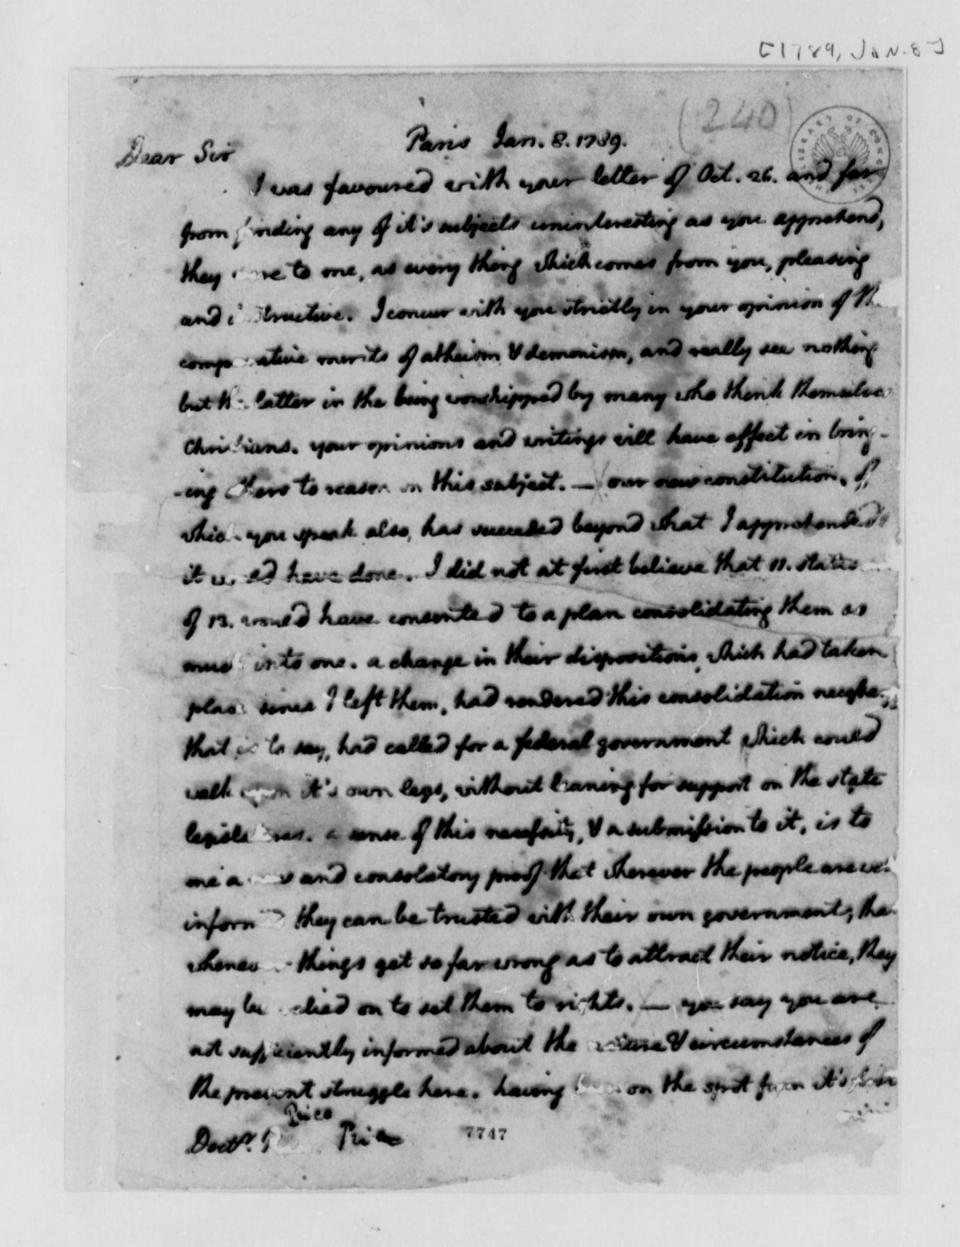 [1789, JAN. 8]
(240)
LIBRARY OF CONGRESS
Paris Jan. 8. 1789.
Dear Sir
I was favoured with your letter of Oct. 26. and far
from finding any of it's subjects uninteresting as you apprehend,
they were to me, as every thing which comes from you, pleasing
and instructive. I concur with you strictly in your opinion of the
comparative merits of atheism & demonism, and really see nothing
but the latter in the being worshipped by many who think themselves
Christians. your opinions and writings will have effect in bring-
-ing others to reason on this subject. — our new constitution, of
which you speak also, has succeeded beyond what I apprehended
it would have done. I did not at first believe that 11. states
of 13. would have consented to a plan consolidating them as
much into one. a change in their dispositions, which had taken
place since I left them, had rendered this consolidation necessary,
that is to say, had called for a federal government which could
walk upon it's own legs, without leaning for support on the state
legislatures. a sense of this necessity, & a submission to it, is to
me a new and consolatory proof that wherever the people are well
informed they can be trusted with their own government; that
whenever things get so far wrong as to attract their notice, they
may be relied on to set them to rights. — you say you are
not sufficiently informed about the nature & circumstances of
the present struggle here. having been on the spot from it's first
Price
Doctr. Price
7747